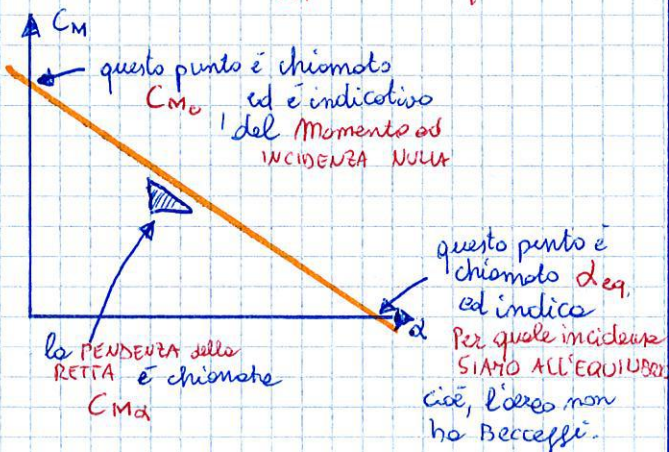 CM
questo punto è chiamato
CMo ed è indicativo
del Momento ad
INCIDENZA NULLA
questo punto è
chiamato αeq.
ed indica
Per quale incidenza
SIAMO ALL'EQUILIBRIO
cioè, l'aereo non
ha Beccaggi.
α
la PENDENZA della
RETTA è chiamata
CMα